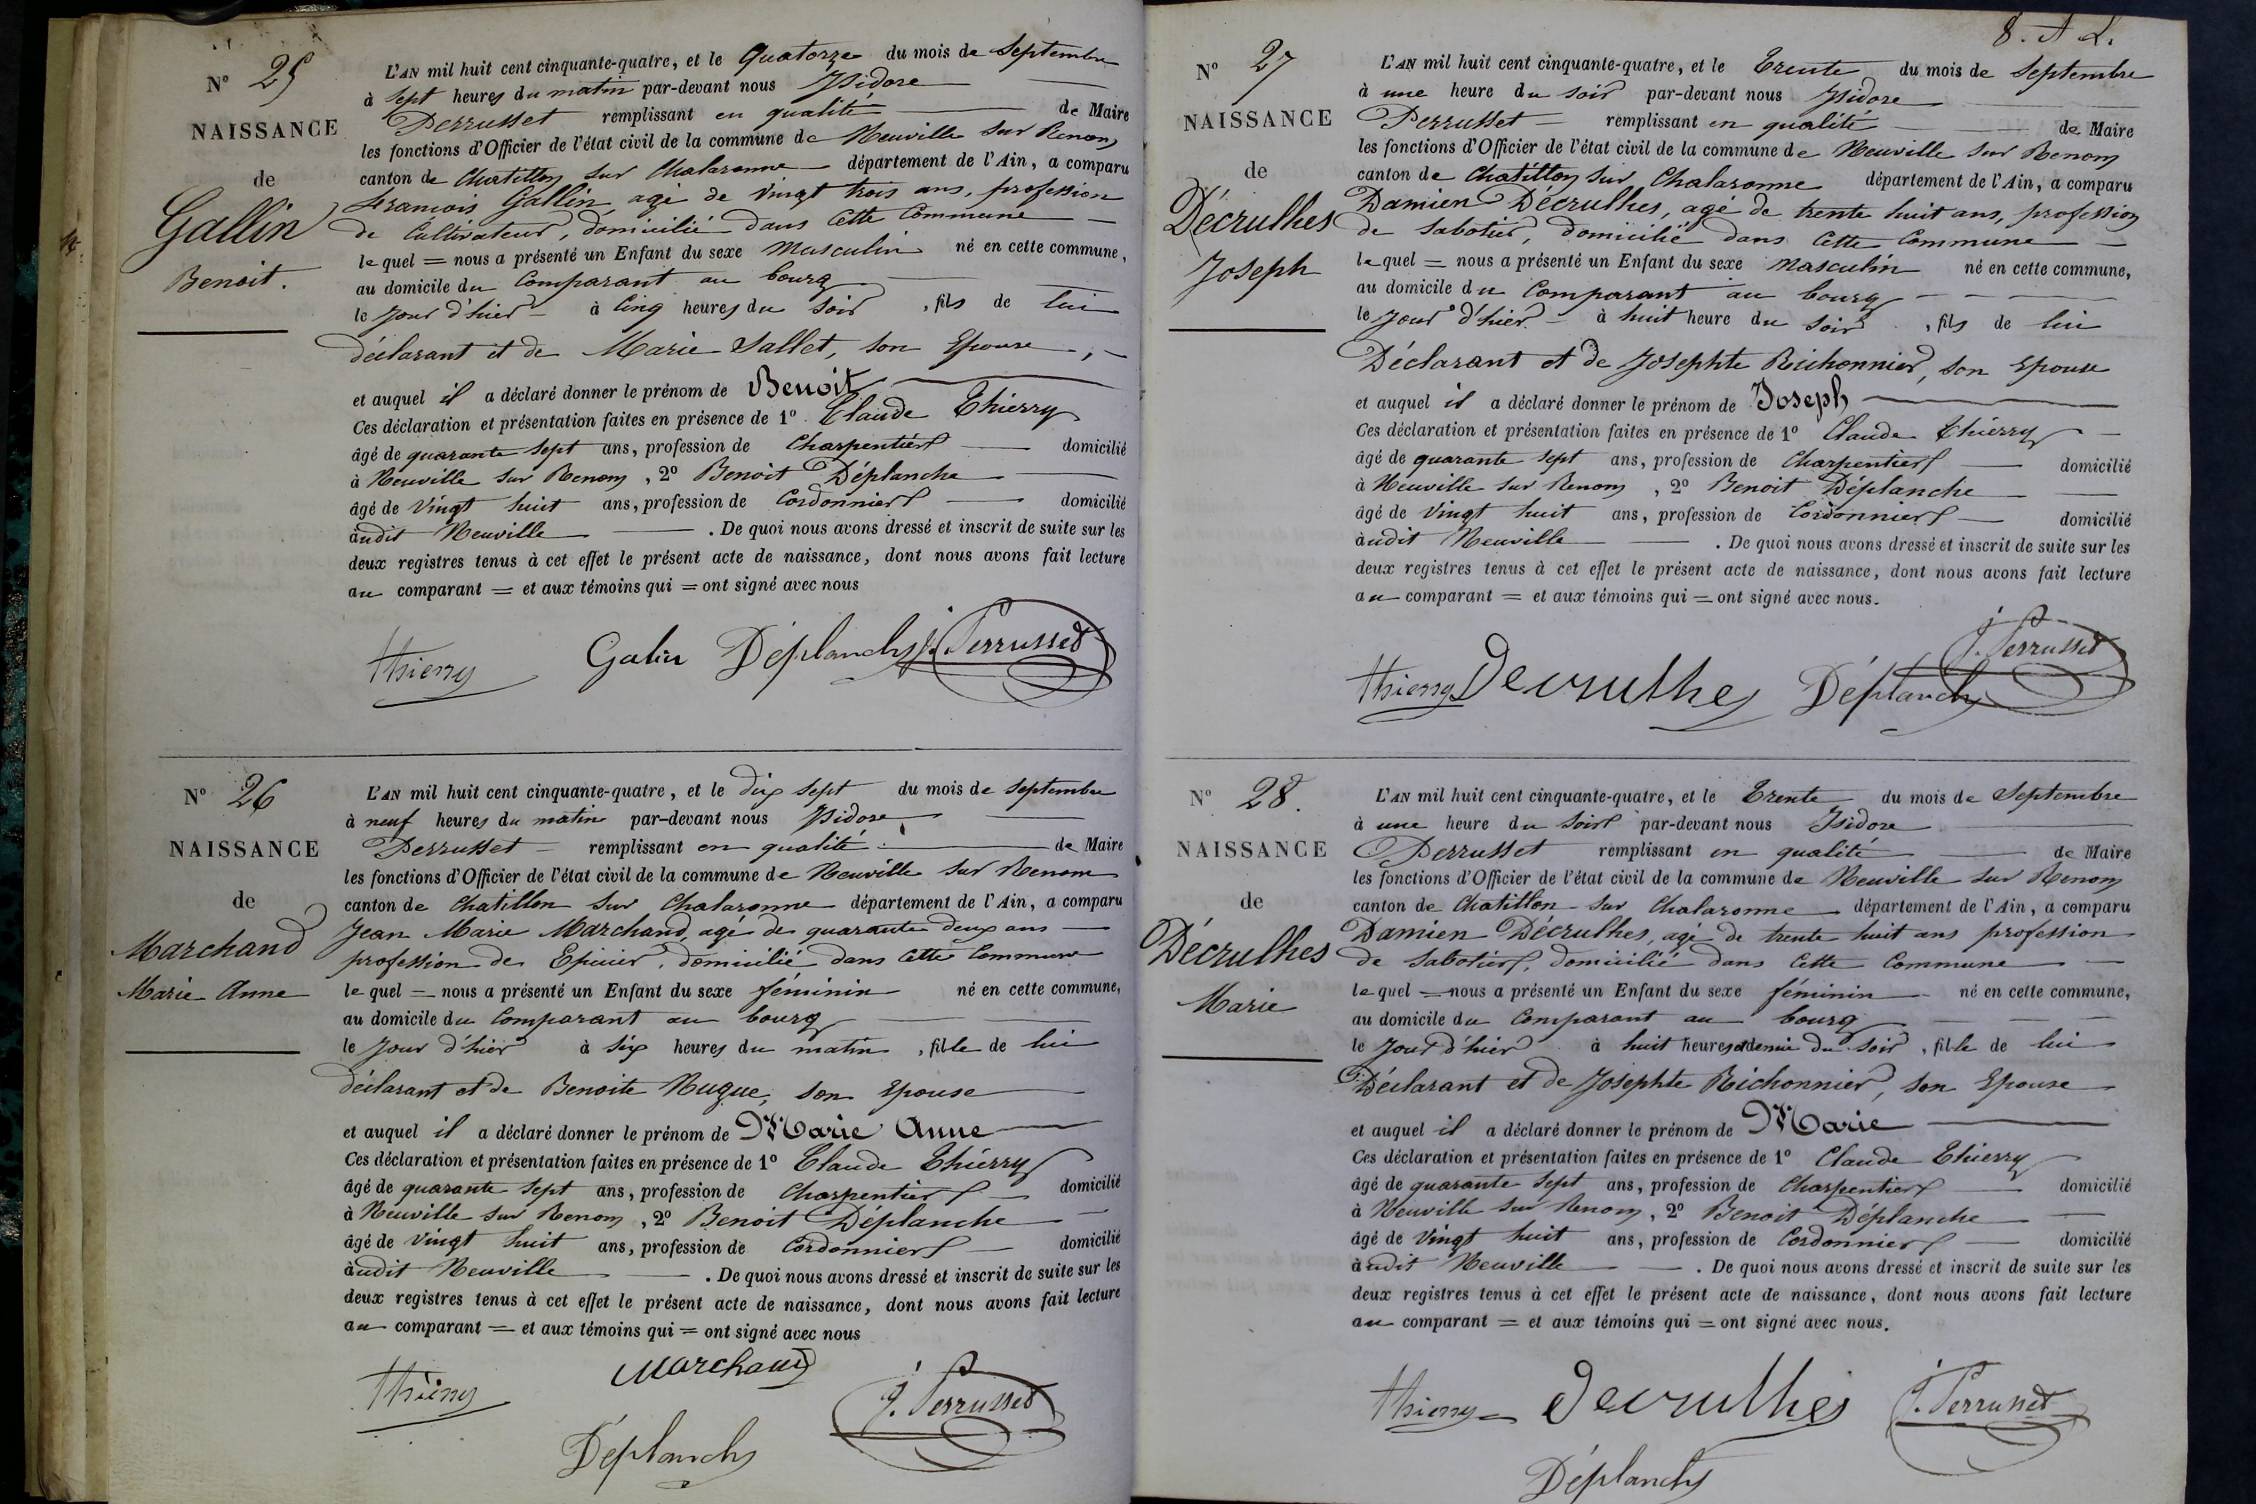 N° 25
NAISSANCE
de
Gallin
Benoit.
L'AN mil huit cent cinquante-quatre, et le Quatorze du mois de Septembre
à sept heures du matin par-devant nous Isidore
Perrusset remplissant en qualité de Maire
les fonctions d'Officier de l'état civil de la commune de Neuville sur Renom
canton de Chatillon sur Chalaronne département de l'Ain, a comparu
francois Gallin agé de vingt trois ans, profession
de Cultivateur, domicilié dans cette Commune
lequel = nous a présenté un Enfant du sexe masculin né en cette commune,
au domicile du Comparant au bourg
le jour d'hier à Cinq heures du soir, fils de lui
déclarant et de Marie Sallet, son Epouse,
et auquel il a déclaré donner le prénom de Benoit
Ces déclaration et présentation faites en présence de 1° Claude Thierry
âgé de quarante sept ans, profession de Charpentier domicilié
à Neuville sur Renom, 2° Benoit Déplanche
âgé de vingt huit ans, profession de Cordonnier domicilié
àudit Neuville. De quoi nous avons dressé et inscrit de suite sur les
deux registres tenus à cet effet le présent acte de naissance, dont nous avons fait lecture
au comparant = et aux témoins qui = ont signé avec nous
Thierry Galin Déplanche J. Perrusset
N° 26
NAISSANCE
de
Marchand
Marie Anne
L'AN mil huit cent cinquante-quatre, et le dix sept du mois de septembre
à neuf heures du matin par-devant nous Isidore
Perrusset remplissant en qualité de Maire
les fonctions d'Officier de l'état civil de la commune de Neuville sur Renom
canton de Chatillon sur Chalaronne département de l'Ain, a comparu
Jean Marie Marchand agé de quarante deux ans
profession de Epicier, domicilié dans cette Commune
lequel = nous a présenté un Enfant du sexe féminin né en cette commune,
au domicile du Comparant au bourg
le jour d'hier à six heures du matin, fille de lui
déclarant et de Benoite Nugue, son Epouse
et auquel il a déclaré donner le prénom de Marie Anne
Ces déclaration et présentation faites en présence de 1° Claude Thierry
âgé de quarante sept ans, profession de Charpentier domicilié
à Neuville sur Renom, 2° Benoit Déplanche
âgé de vingt huit ans, profession de Cordonnier domicilié
àudit Neuville. De quoi nous avons dressé et inscrit de suite sur les
deux registres tenus à cet effet le présent acte de naissance, dont nous avons fait lecture
au comparant = et aux témoins qui = ont signé avec nous
Thierry Marchand J. Perrusset
Déplanche
8.
N° 27
NAISSANCE
de
Décrulhes
Joseph
L'AN mil huit cent cinquante-quatre, et le Trente du mois de Septembre
à une heure du soir par-devant nous Isidore
Perrusset = remplissant en qualité de Maire
les fonctions d'Officier de l'état civil de la commune de Neuville sur Renom
canton de Chatillon sur Chalaronne département de l'Ain, a comparu
Damien Décrulhes, agé de trente huit ans, profession
de Sabotier, domicilié dans Cette Commune
lequel = nous a présenté un Enfant du sexe masculin né en cette commune,
au domicile du Comparant au bourg
le jour d'hier à huit heure du soir, fils de lui
Déclarant et de Josephte Richonnier, son Epouse
et auquel il a déclaré donner le prénom de Joseph
Ces déclaration et présentation faites en présence de 1° Claude Thiérry
âgé de quarante sept ans, profession de Charpentier domicilié
à Neuville sur Renom, 2° Benoit Déplanche
âgé de vingt huit ans, profession de Cordonnier domicilié
àudit Neuville. De quoi nous avons dressé et inscrit de suite sur les
deux registres tenus à cet effet le présent acte de naissance, dont nous avons fait lecture
au comparant = et aux témoins qui = ont signé avec nous.
Thierry Decrulhes Déplanche J. Perrusset
N° 28.
NAISSANCE
de
Décrulhes
Marie
L'AN mil huit cent cinquante-quatre, et le Trente du mois de Septembre
à une heure du soir par-devant nous Isidore
Perrusset remplissant en qualité de Maire
les fonctions d'Officier de l'état civil de la commune de Neuville sur Renom
canton de Chatillon sur Chalaronne département de l'Ain, a comparu
Damien Décrulhes, agé de trente huit ans profession
de Sabotier, domicilié dans Cette Commune
lequel = nous a présenté un Enfant du sexe féminin né en cette commune,
au domicile du Comparant au bourg
le jour d'hier à huit heures et demie du soir, fille de lui
Déclarant et de Josephte Richonnier, son Epouse
et auquel il a déclaré donner le prénom de Marie
Ces déclaration et présentation faites en présence de 1° Claude Thierry
âgé de quarante sept ans, profession de Charpentier domicilié
à Neuville sur Renom, 2° Benoit Déplanche
âgé de vingt huit ans, profession de Cordonnier domicilié
àudit Neuville. De quoi nous avons dressé et inscrit de suite sur les
deux registres tenus à cet effet le présent acte de naissance, dont nous avons fait lecture
au comparant = et aux témoins qui = ont signé avec nous.
Thierry Decrulhes J. Perrusset
Déplanche